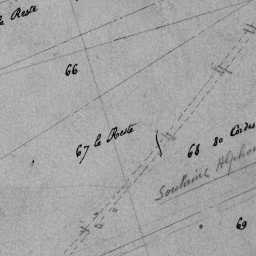 le Reste
66
67 le Reste
68 80 Cordes
Soulaine Alphon
69